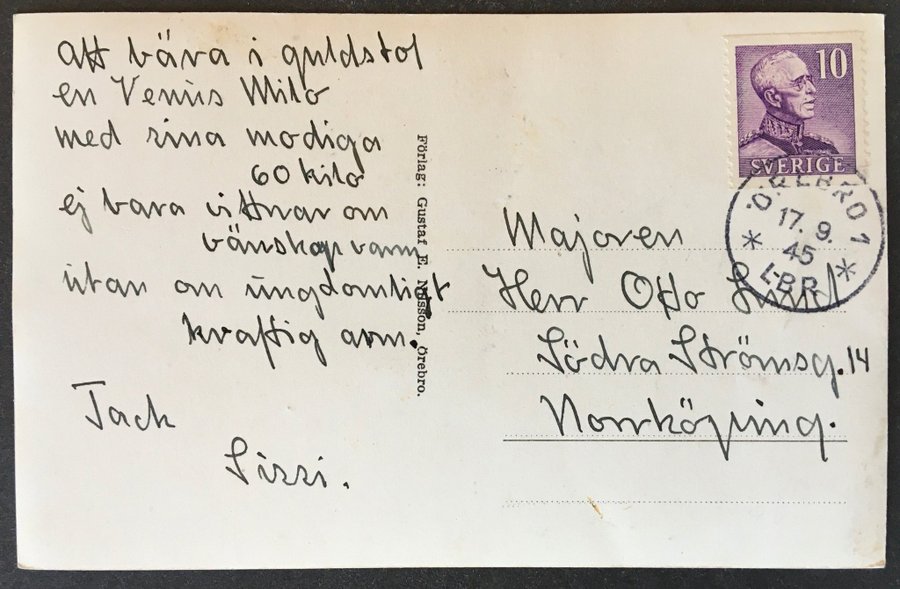 att bära i guldstol
en Venus Milo
med sina modiga
60 kilo
ej bara vittnar om
vänskap varm
utan om ungdomligt
kraftig arm.
Tack
Sissi.
Förlag: Gustaf E. Nilsson, Örebro.
10
SVERIGE
ÖREBRO 1
17. 9.
45
LBR
Majoren
Herr Otto
Södra Strömsg. 14
Norrköping.